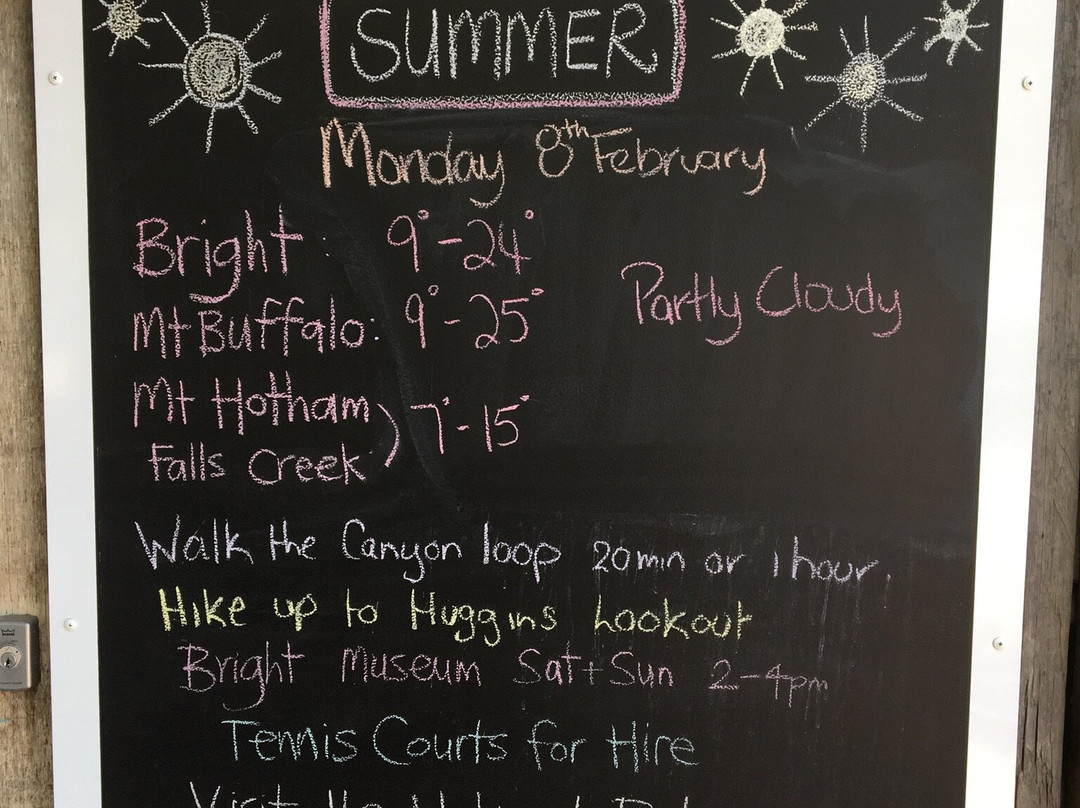 SUMMER
Monday 8th February
Bright : 9° - 24°
Partly Cloudy
Mt Buffalo : 9° - 25°
Mt Hotham
Falls Creek ) 7° - 15°
Walk the Canyon loop 20min or 1 hour.
Hike up to Huggins Lookout
Bright Museum Sat + Sun 2-4pm
Tennis Courts for Hire
Visit the